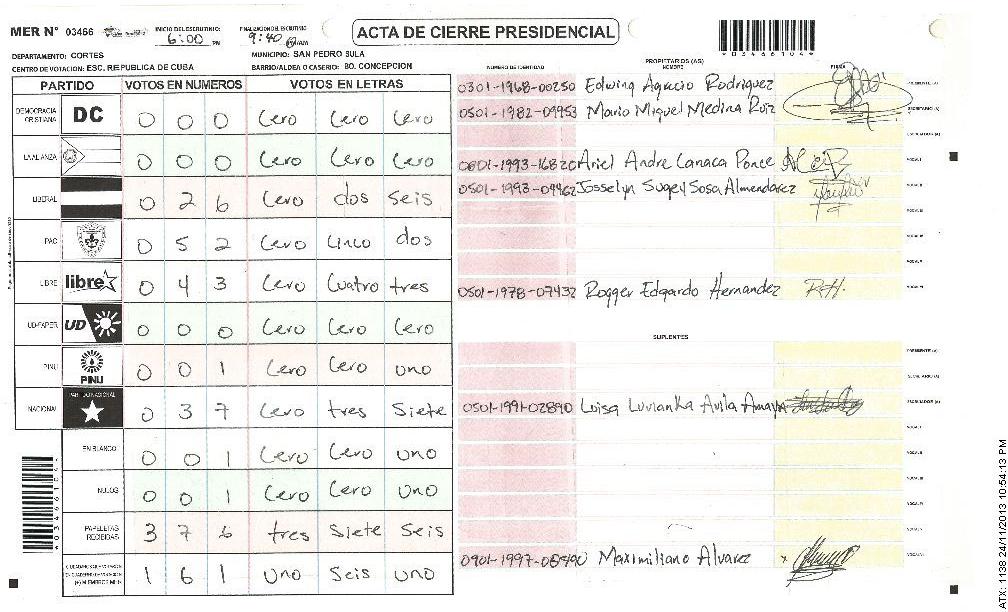 MER N° 03466 INICIO DEL ESCRUTINIO: 6:00 PM FINALIZACION DEL ESCRUTINIO 9:40 ACTA DE CIERRE PRESIDENCIAL
DEPARTAMENTO: CORTES MUNICIPIO: SAN PEDRO SULA
CENTRO DE VOTACION: ESC. REPUBLICA DE CUBA BARRIO/ALDEA O CASERIO: BO. CONCEPCION
PARTIDO VOTOS EN NUMEROS VOTOS EN LETRAS
DEMOCRACIA CRISTIANA DC 0 0 0 Cero Cero Cero
LA ALIANZA 0 0 0 Cero Cero Cero
LIBERAL 0 2 6 Cero dos seis
PAC 0 5 2 Cero Cinco dos
LIBRE libre 0 4 3 Cero Cuatro tres
UD-FAPER UD 0 0 0 Cero Cero Cero
PINU PINU 0 0 1 Cero Cero uno
NACIONAL PARTIDO NACIONAL 0 3 7 Cero tres Siete
EN BLANCO 0 0 1 Cero Cero uno
NULOS 0 0 1 Cero Cero uno
PAPELETAS RECIBIDAS 3 7 6 tres siete Seis
1 6 1 Uno Seis uno
NUMERO DE IDENTIDAD PROPIETARIOS (AS) NOMBRE FIRMA
0301-1968-00250 Edwing Agacio Rodriguez PRESIDENTE (A)
0501-1982-09953 Mario Miguel Medina Ruiz SECRETARIO (A)
ESCRUTADOR (A)
0801-1993-16820 Ariel Andre Canaca Ponce VOCAL I
0501-1993-09962 Josselyn Sugey Sosa Almendarez VOCAL II
VOCAL III
VOCAL IV
VOCAL V
0501-1978-07432 Rogger Edgardo Hernandez R.H. VOCAL VI
SUPLENTES
PRESIDENTE (A)
SECRETARIO (A)
0501-1991-02890 Luisa Luvianka Avila Amaya ESCRUTADOR (A)
VOCAL I
VOCAL II
VOCAL III
VOCAL IV
VOCAL V
Maximiliano Alvarez VOCAL VI
ATX: 1138 24/11/2013 10:54:13 PM